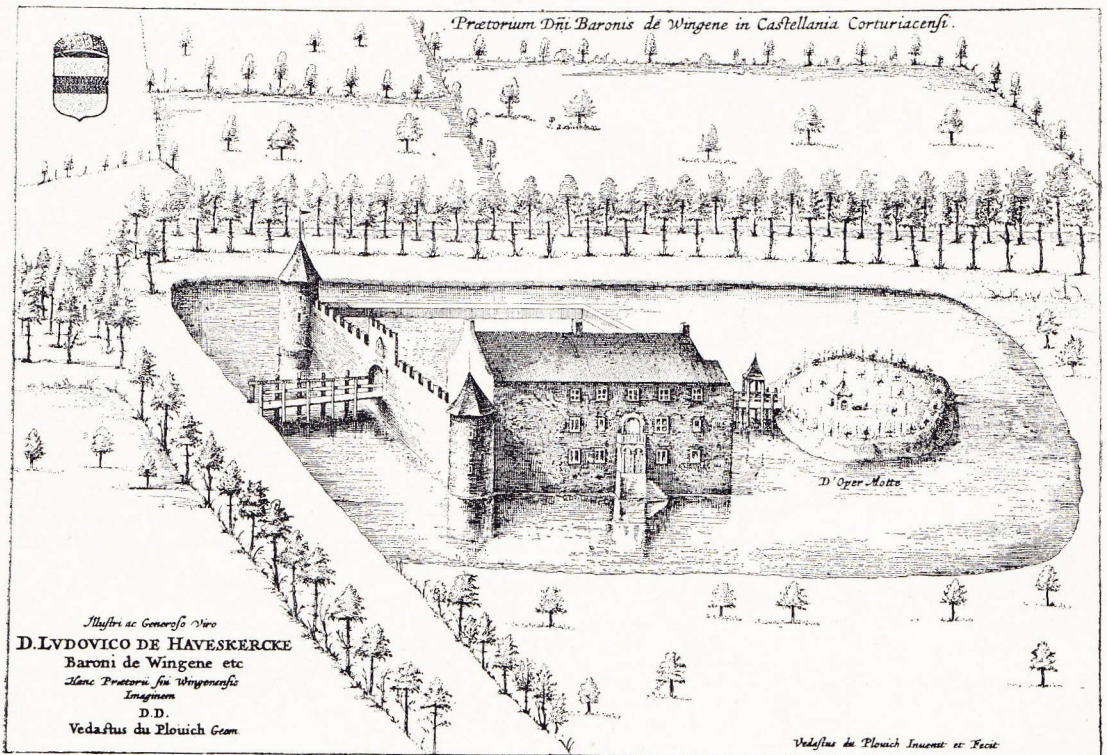 Prætorium Dñi Baronis de Wingene in Castellania Corturiacensi.
D'Oper Motte
Illustri ac Generoso Viro
D. LVDOVICO DE HAVESKERCKE
Baroni de Wingene etc
Hanc Prætorii sui Wingenensis
Imaginem
D.D.
Vedastus du Plouich Geom.
Vedastus du Plouich Invenit et Fecit